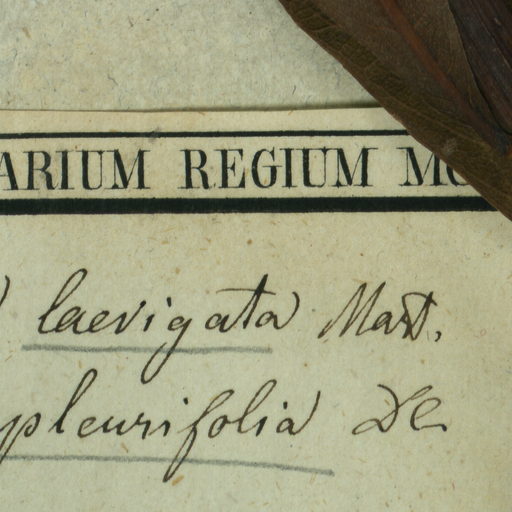 ARIUM REGIUM MO
laevigata Mart.
pleurifolia DC